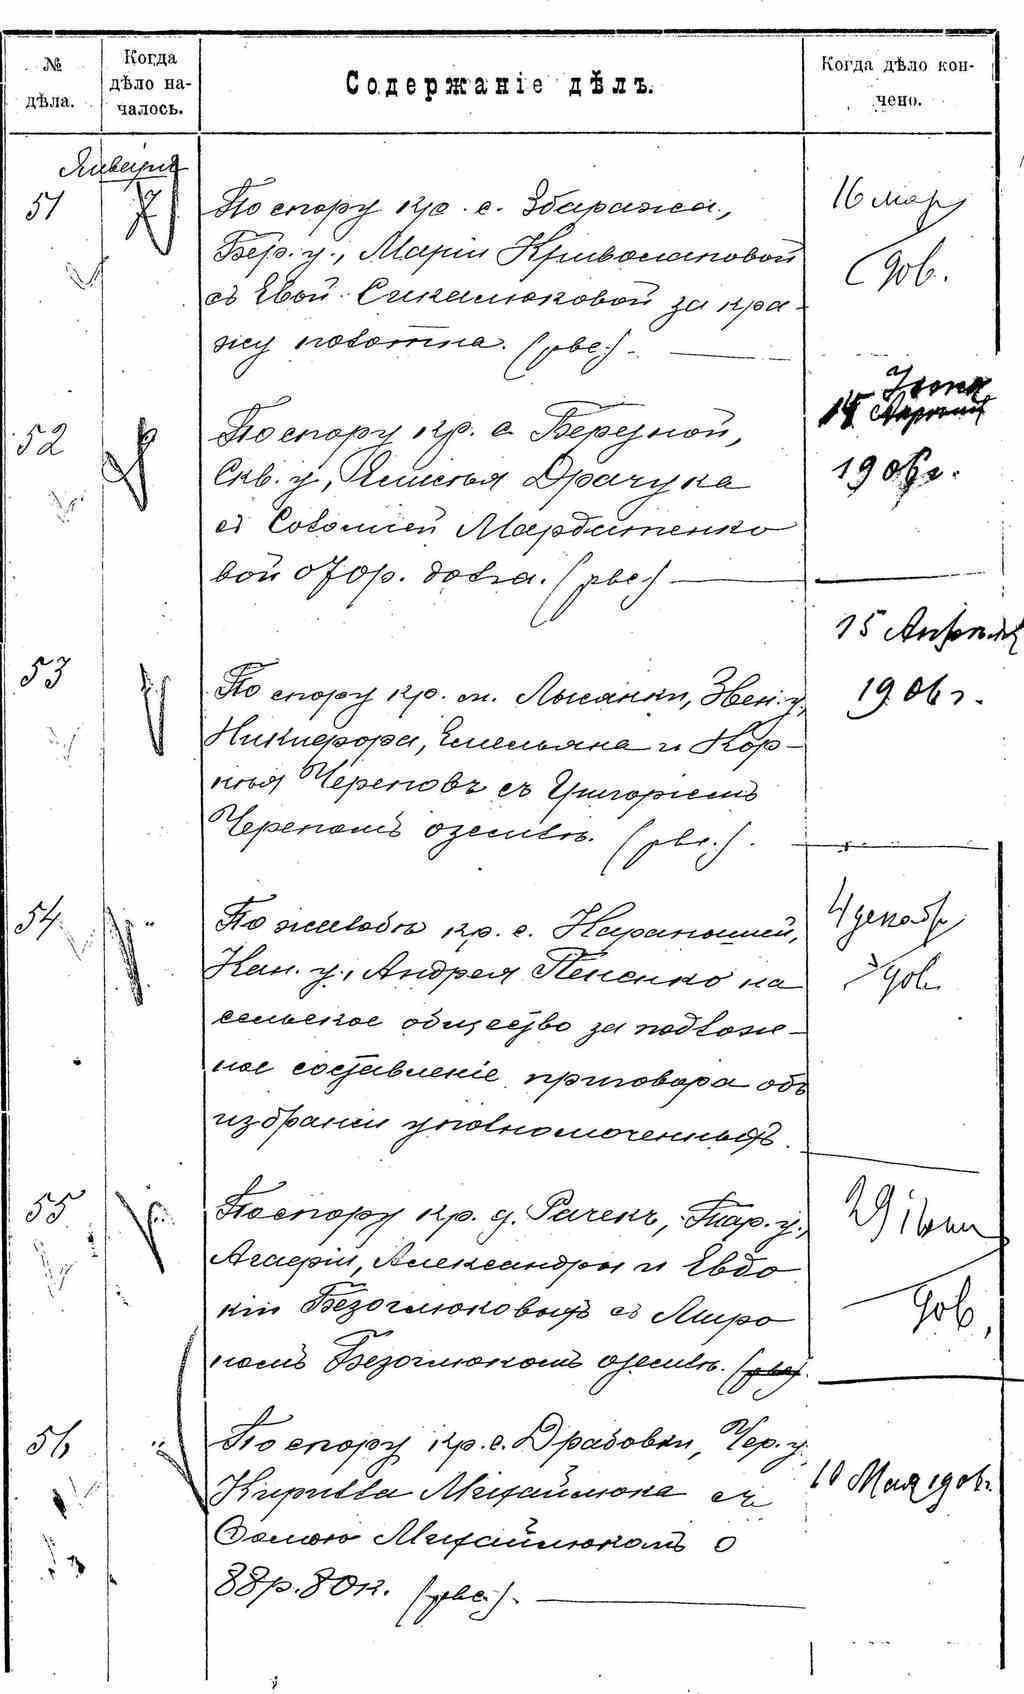 № дѣла.
Когда дѣло на-
чалось.
Содержаніе дѣлъ.
Когда дѣло кон-
чено.
Января
51
7
По спору кр. с. Збаража,
Бер. у., Маріи Кривошаповой
съ Евой Сикалюковой за кра-
жу полотна. (рве.)
16 мар
дов.
52
По спору кр. с. Березной,
Скв. у., Драчука
съ Соломіей Мардатенко
вой о 70 р. долга. (рве.)
15 Іюня
1906г.
53
По спору кр. м. Лысянки, Звен. у.,
Никифора, Емельяна и Кор-
нья Череповъ съ Григоріемъ
Черепомъ о землѣ. (рве.).
15 Апрѣля
1906 г.
54
По жалобѣ кр. с.
Кан. у., Андрея Пененко на
сельское общество за подлож-
ное составленіе приговора объ
избраніи уполномоченныхъ.
4 декабр
дов.
55
По спору кр. д. Рачекъ, Тар. у.,
Агафіи, Александры и Евдо
кіи Безоглюковыхъ съ Миро
номъ Безоглюкомъ о землѣ. (рве).
29 іюни
дов.
56
"
По спору кр. с. Драбовки, Чер. у.
Кирилла Михайлюка съ
Ѳомою Михайлюкомъ о
88р. 80к. (рве.).
10 Мая 1906г.